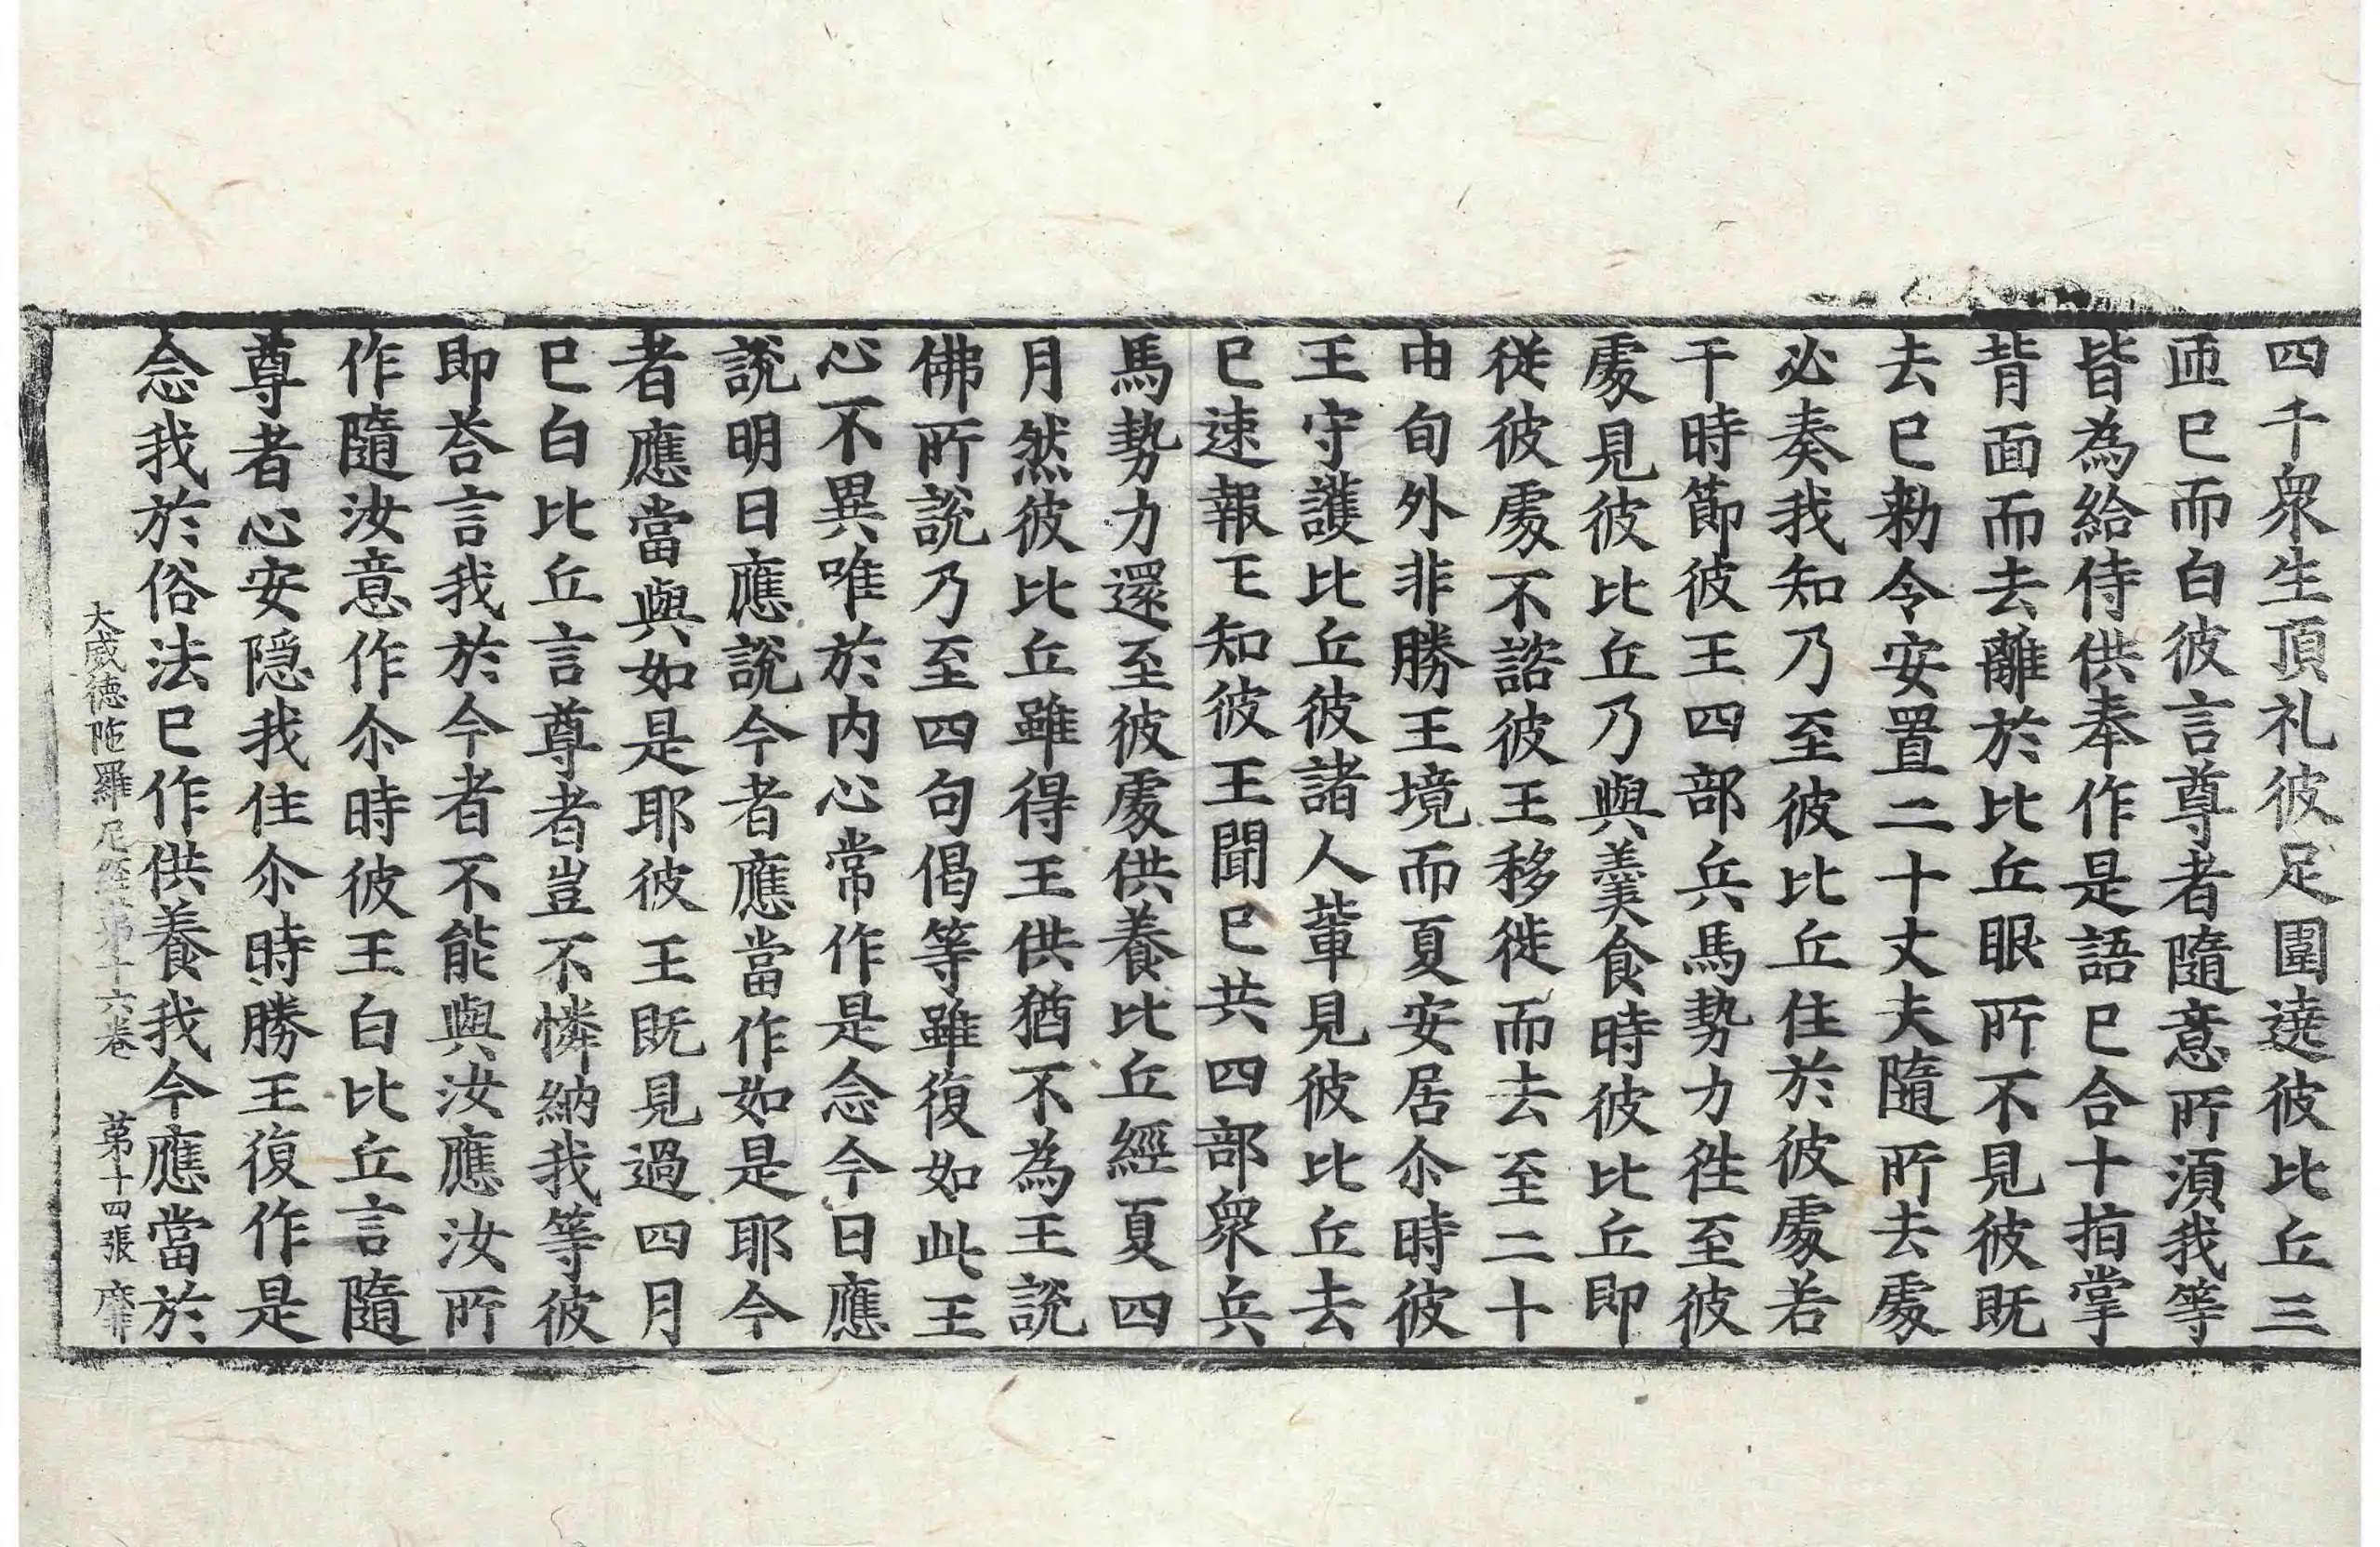 四千衆生頂礼彼足圍遶彼比丘三
迊已而白彼言尊者隨意所湏我等
皆為給侍供奉作是語已合十指掌
背面而去離於比丘眼所不見彼既
去已勑令安置二十丈夫隨所去處
必奏我知乃至彼比丘住於彼處若
干時節彼王四部兵馬勢力徃至彼
處見彼比丘乃與羹食時彼比丘即
從彼處不諮彼王移徙而去至二十
由旬外非勝王境而夏安居尒時彼
王守護比丘彼諸人輩見彼比丘去
已速報王知彼王聞已共四部衆兵
馬勢力還至彼處供養比丘經夏四
月然彼比丘雖得王供猶不為王說
佛所說乃至四句偈等雖復如此王
心不異唯於内心常作是念今日應
說明日應說今者應當作如是耶今
者應當與如是耶彼王既見過四月
已白比丘言尊者豈不憐納我等彼
即荅言我於今者不能與汝應汝所
作隨汝意作尒時彼王白比丘言隨
尊者心安隠我住尒時勝王復作是
念我於俗法已作供養我今應當於
大威德陁羅尼經第十六卷 第十四張